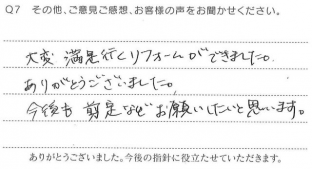 Q7 その他、ご意見ご感想、お客様の声をお聞かせください。
大変 満足行くリフォームができました。
ありがとうございました。
今後も 剪定などお願いしたいと思います。
ありがとうございました。今後の指針に役立たせていただきます。